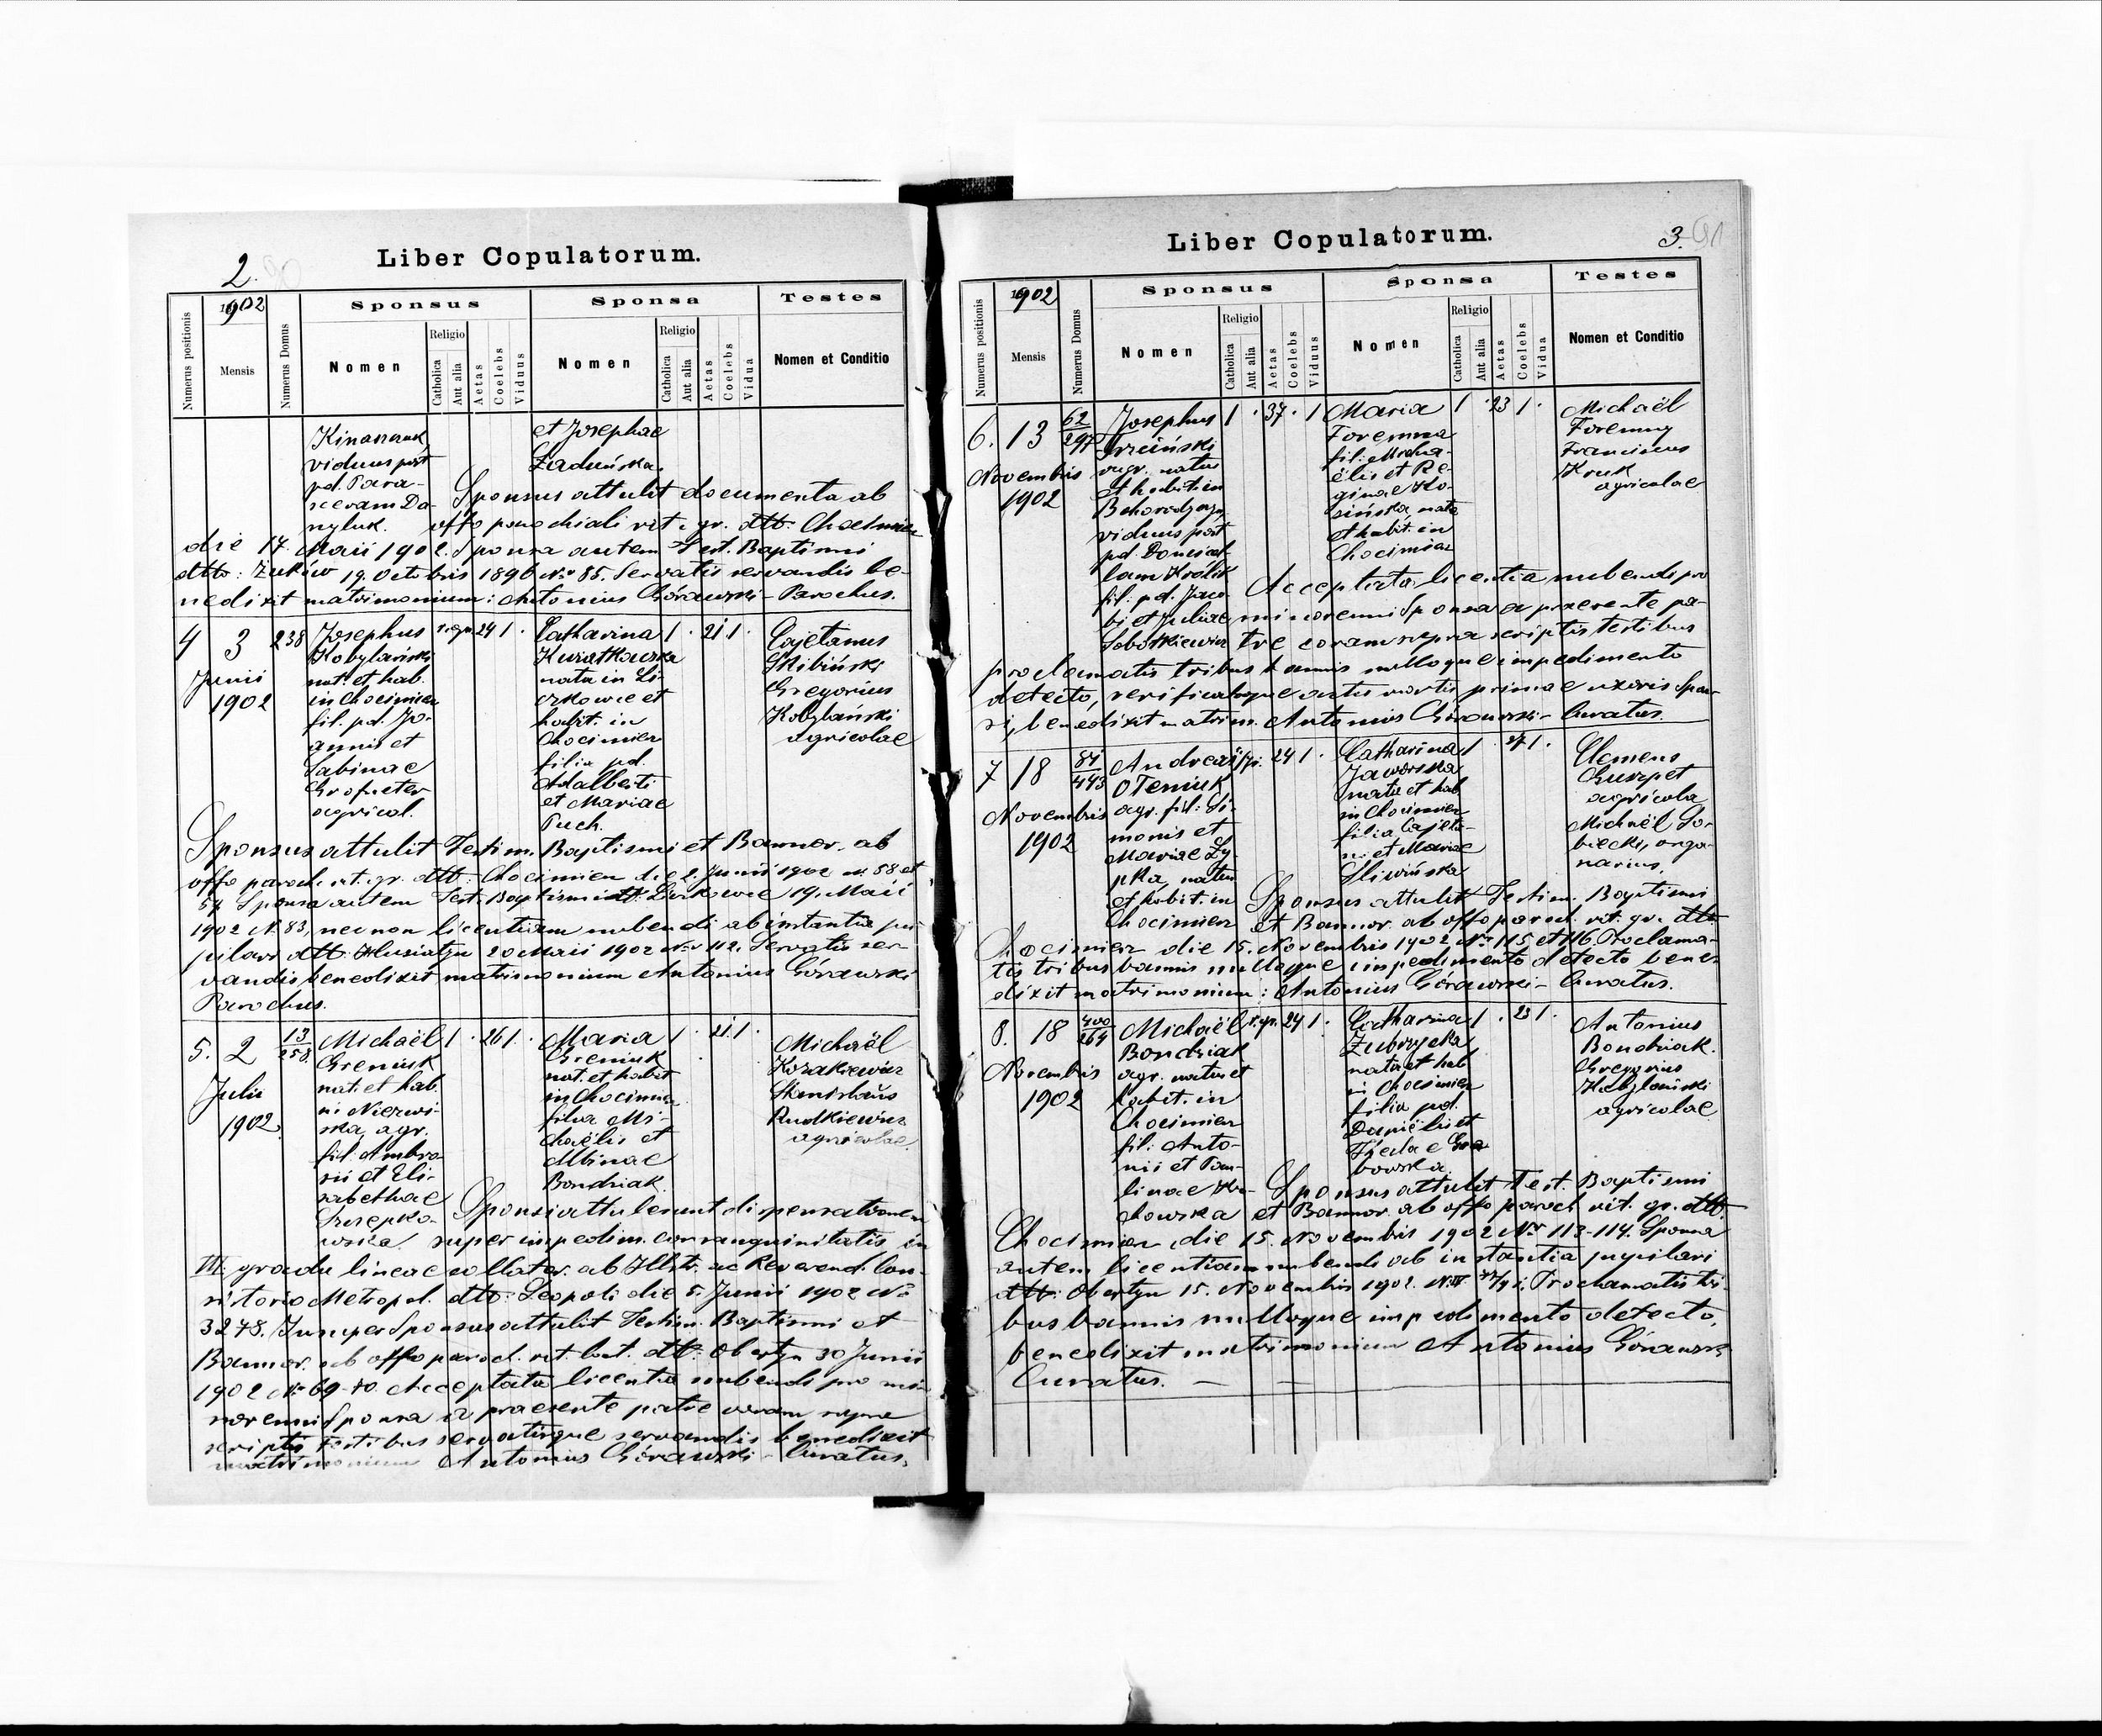 2.
Liber Copulatorum.
Numerus positionis
1902
Mensis
Numerus Domus
Sponsus
Nomen
Religio
Catholica
Aut alia
Aetas
Coelebs
Viduus
Sponsa
Nomen
Religio
Catholica
Aut alia
Aetas
Coelebs
Vidua
Testes
Nomen et Conditio
viduus post
pd. Para-
scevam Da-
nyluk.
et Josephae
Zaduńska.
Sponsus attulit documenta ab
offo parochiali rit. gr. dtto. Chocimierz
die 17. Maii 1902. Sponsa autem Test. Baptismi
dtto: Żuków 19. Octobris 1896 Nro 85. Servatis servandis be-
nedixit matrimonium: Antonius Górawski - Parochus.
4
3
Junii
1902
238
Josephus
Kobylański
nat. et hab.
in Chocimierz
fil. pd. Jo-
annis et
Sabinae
agricol.
r. gr. 24 1 .
Catharina
Kwiatkowska
nata in Li-
czkowce et
habit. in
Chocimierz
filia pd.
Adalberti
et Mariae
Puch.
1 . 21 1 .
Cajetanus
Skibiński
Gregorius
Kobylański
agricolae
Sponsus attulit Testim. Baptismi et Bannor. ab
offo paroch. rit. gr. dtto. Chocimierz die 2. Junii 1902 N. 58 et
Sponsa autem Test. Baptismi dtto. Liczkowce 19. Maii
1902 N. 83, nec non licentiam nubendi ab instantia pu
pilari dtto. Husiatyn 20 Maii 1902 Nro 112. Servatis ser-
vandis benedixit matrimonium Antonius Górawski
Parochus.
5.
2
Julii
1902
13
258
Michaël
Greniuk
nat. et hab.
in Niezwi-
ska, agr.
fil. Ambro-
sii et Eli-
sabethae
1 . 26 1 .
Maria
Greniuk
nat. et habit
in Chocimierz
filia Mi-
chaëlis et
Albinae
Bondziak.
1 . 21 1 .
Michaël
Kozakiewicz
Stanislaus
Rudkiewicz
agricolae
Sponsi attulerunt dispensationem
super impedim. consanguinitatis in
III. gradu lineae collater. ab Illstr. ac Reverend. Con-
sistorio Metropol. dtto: Leopoli die 5. Junii 1902 No
3278. Insuper Sponsus attulit Testim. Baptismi et
Bannor. ab offo paroch. rit. lat. dtto: Obertyn 30 Junii
1902 N. 69-70. Acceptata licentia nubendi pro mi-
norenni Sponsa a praesente patre coram supra
scriptis testibus servatisque servandis benedixit
matrimonium Antonius Górawski - Curatus.
Liber Copulatorum.
3.
Numerus positionis
1902
Mensis
Numerus Domus
Sponsus
Nomen
Religio
Catholica
Aut alia
Aetas
Coelebs
Viduus
Sponsa
Nomen
Religio
Catholica
Aut alia
Aetas
Coelebs
Vidua
Testes
Nomen et Conditio
6.
13
Novembris
1902
62
297
Josephus
agr. natus
et habit. in
viduus post
pd. Domicel-
lam Królik
fil. pd. Jaco-
bi et Juliae
Sobotkiewicz
1 . 37 . 1
Maria
Foremna
fil. Micha-
ëlis et Re-
ginae Ko-
sińska, nata
et habit. in
Chocimierz
1 . 23 1 .
Michaël
Foremny
Franciscus
Kruk
agricolae
Acceptata licentia nubendi pro
minorenni Sponsa a praesente pa-
tre coram supra scriptis testibus
proclamatis tribus bannis nulloque impedimento
detecto, verificatoque actu mortis primae uxoris Spon-
si, benedixit matrim. Antonius Górawski - Curatus.
7
18
Novembris
1902
84
443
Andreas
Oteniuk
agr. fil. Si-
monis et
Mariae Zy-
pka, natus
et habit. in
Chocimierz
r. gr. 24 1 .
Catharina
Jaworska
nata et hab
in Chocimierz
filia Cajeta-
ni et Mariae
Śliwińska
1 . 27 1 .
Clemens
agricola
Michaël So-
biecki, orga-
narius.
Sponsus attulit Testim. Baptismi
et Bannor. ab offo paroch. rit. gr. dtto
Chocimierz die 15. Novembris 1902 Nr. 115 et 116. Proclama-
tis tribus bannis nulloque impedimento detecto bene-
dixit matrimonium: Antonius Górawski - Curatus.
8.
18
Novembris
1902
400
264
Michaël
Bondziak
agr. natus et
habit. in
Chocimierz
fil: Anto-
nii et Pau-
linae
chowska
r. gr. 24 1 .
Catharina
Zubrzycka
nata et hab
in Chocimierz
filia pd.
Daniëlis et
Theclae Gra
bowska.
1 . 23 1 .
Antonius
Bondziak.
Gregorius
Kobylański
agricolae
Sponsus attulit Test. Baptismi
et Bannor. ab offo paroch. rit. gr. dtto
Chocimierz die 15. Novembris 1902 Nr. 113-114. Sponsa
autem licentiam nubendi ab instantia pupilari
dtto: Obertyn 15. Novembris 1902. Proclamatis tri-
bus bannis nulloque impedimento detecto,
benedixit matrimonium Antonius Górawski
Curatus.